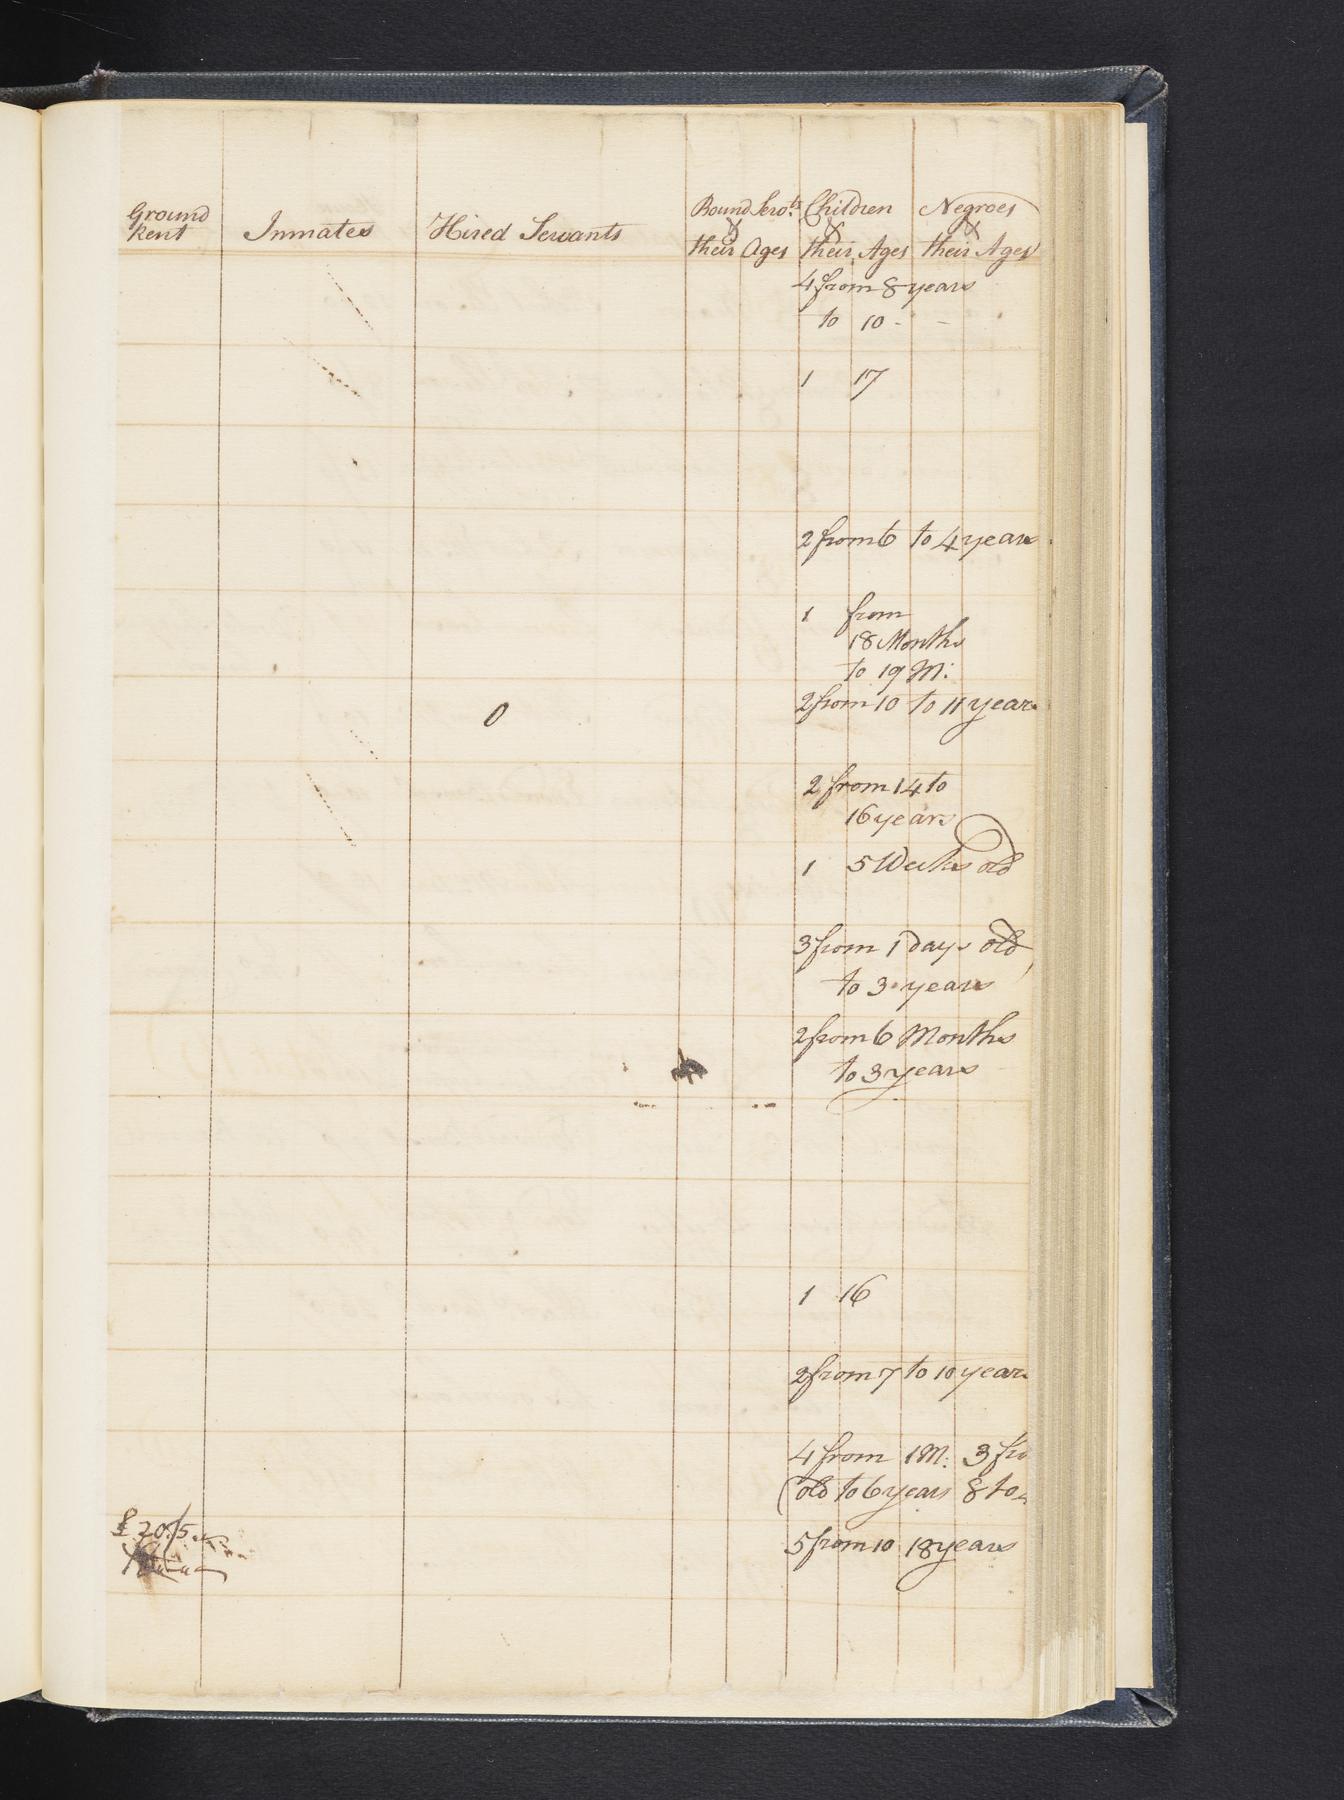 Ground
Rent
Inmates
Hired Servants
Bound Servts
&
their Ages
Children
&
their Ages
Negroes
&
their Ages
4 from 8 years
to 10 - -
1 17
2 from 6 to 4 years
1 from
18 Months
to 19 M:
0
2 from 10 to 11 years
2 from 14 to
16 years
1 5 Weeks old
3 from 1 days old
to 3 years
2 from 6 Months
to 3 years
1 16
2 from 7 to 10 years
4 from 1 M: 3 fro
old to 6 years 8 to
£ 20 /5
5 from 10 18 years